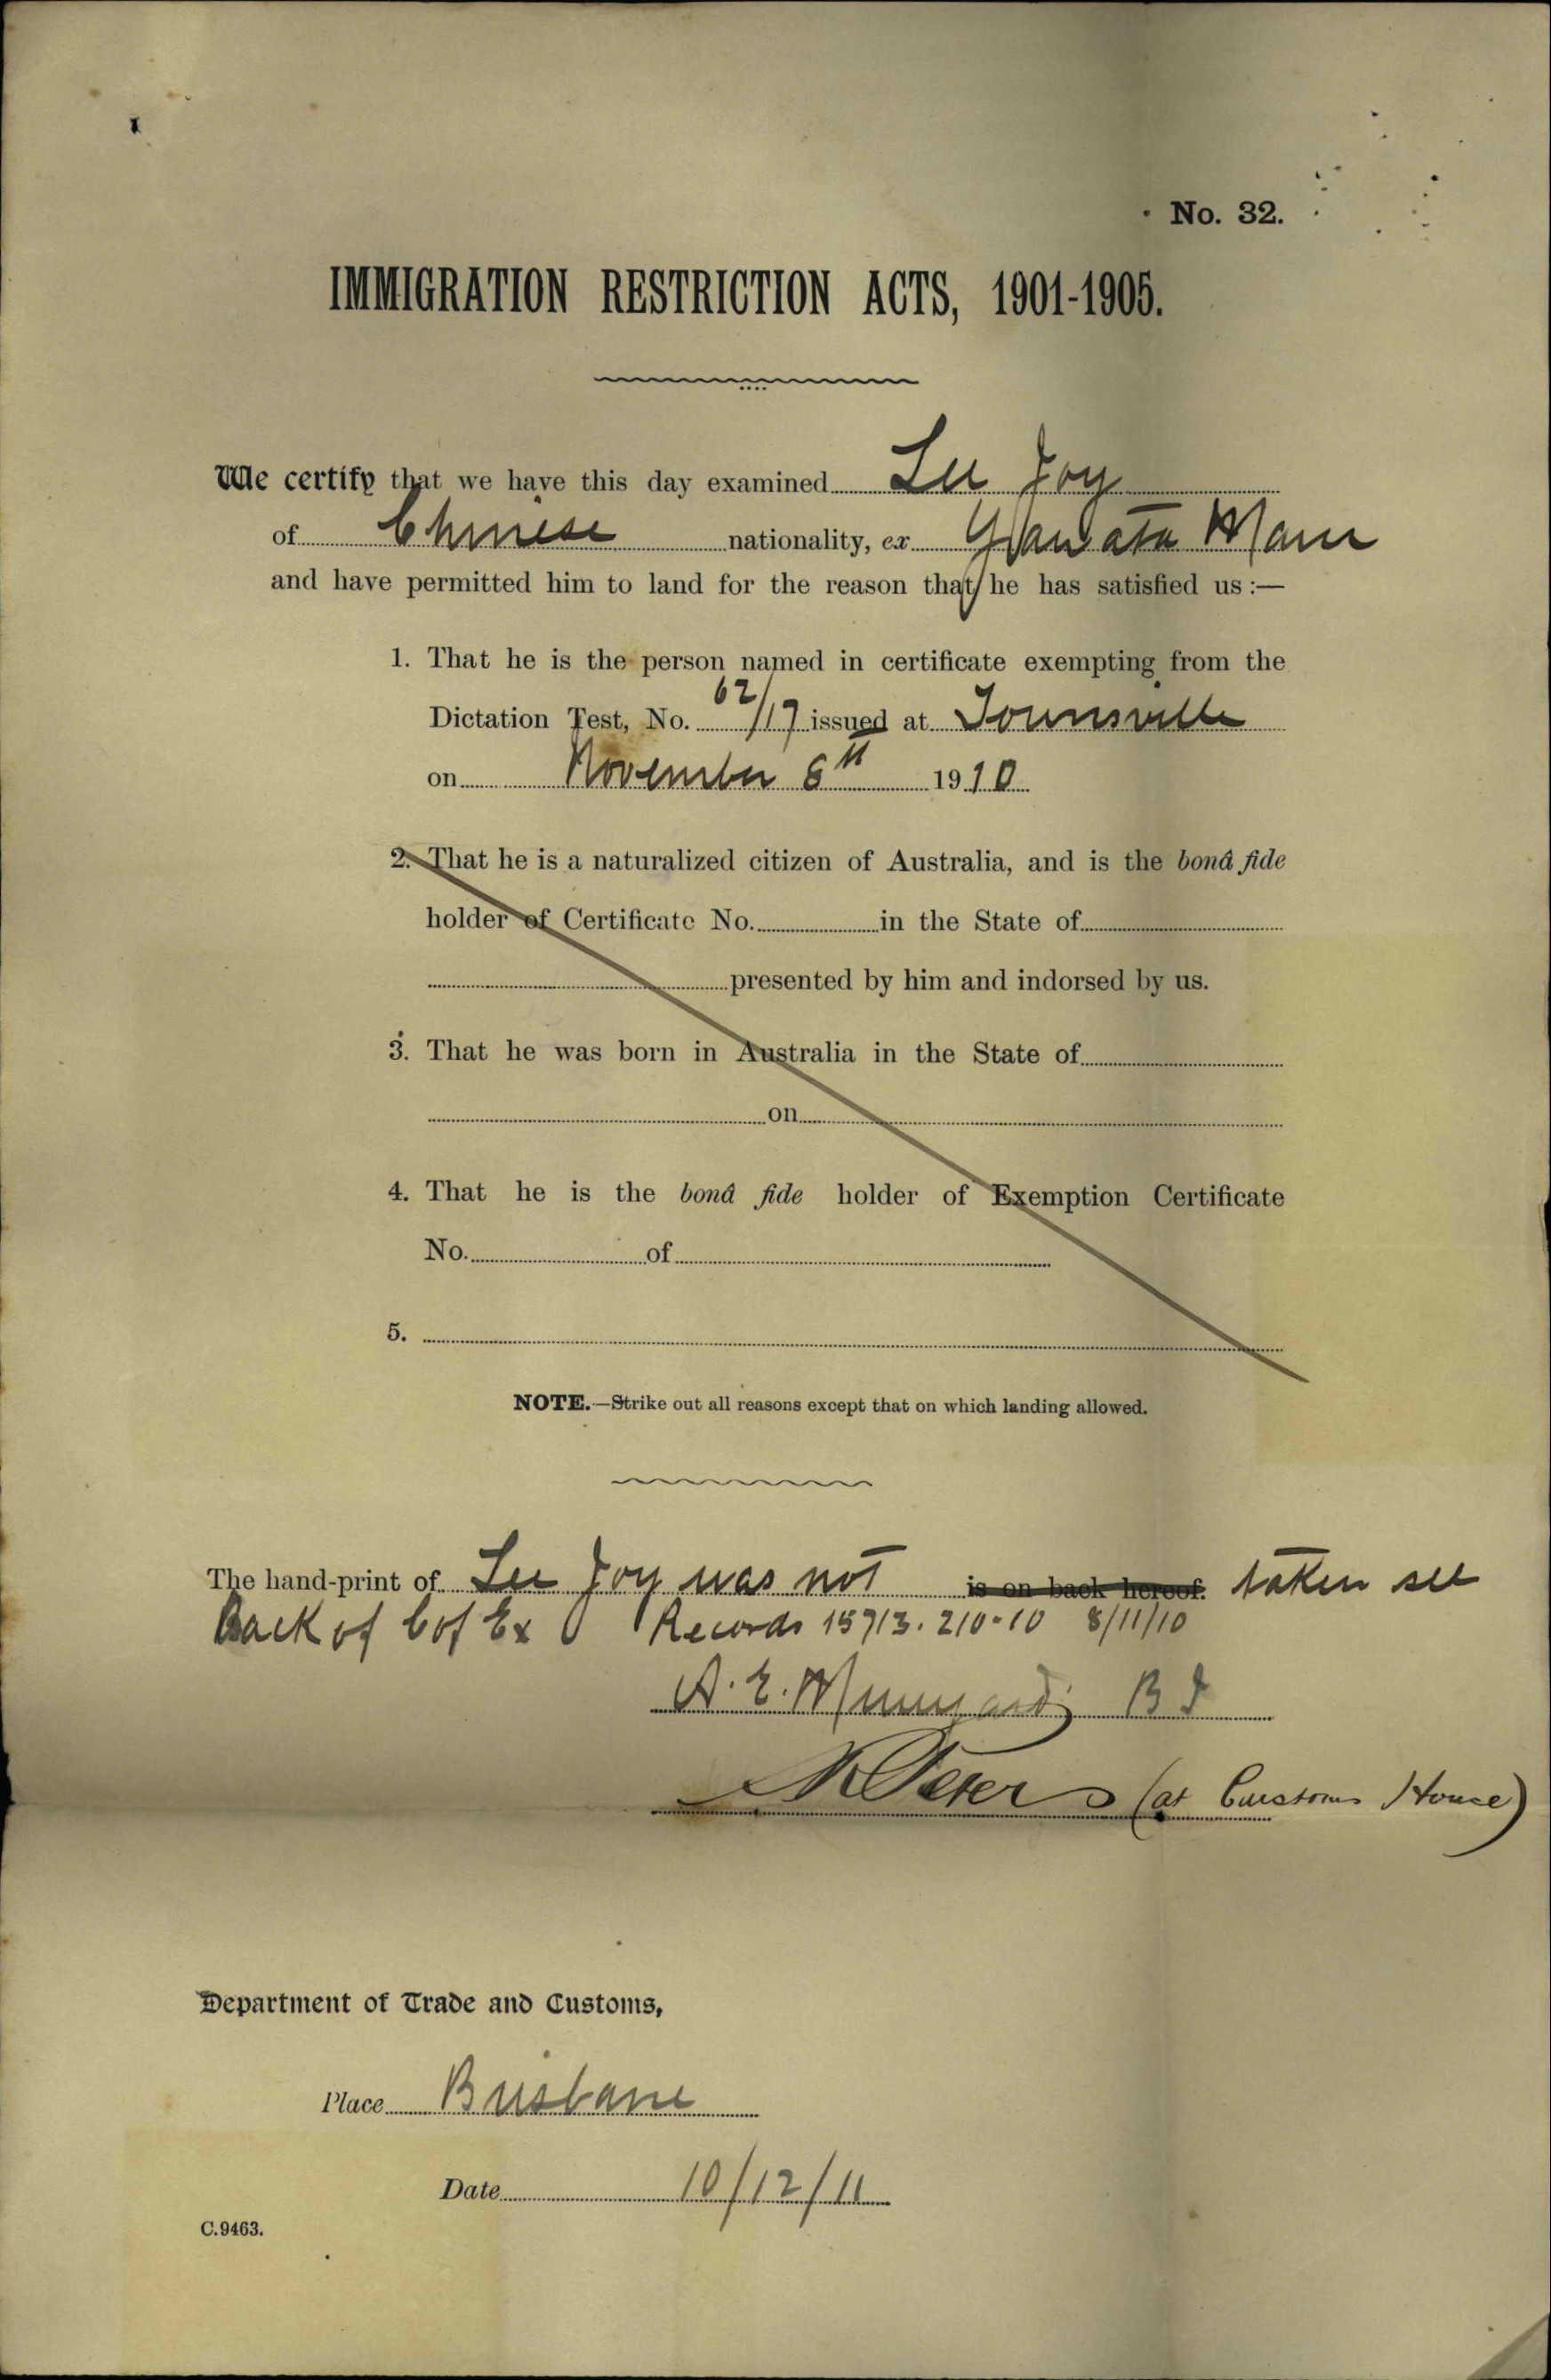 No. 32.
IMMIGRATION RESTRICTION ACTS, 1901-1905.
We certify that we have this day examined Lee Joy
of Chinese nationality, ex Yawata Maru
and have permitted him to land for the reason that he has satisfied us :—
1. That he is the person named in certificate exempting from the
Dictation Test, No. 62/17 issued at Townsville
on November 6th 1910
2. That he is a naturalized citizen of Australia, and is the bonâ fide
holder of Certificate No. in the State of
presented by him and indorsed by us.
3. That he was born in Australia in the State of
on
4. That he is the bonâ fide holder of Exemption Certificate
No. of
5.
NOTE.—Strike out all reasons except that on which landing allowed.
The hand-print of Lee Joy was not is on back hereof. taken see
Back of C of Ex Records 15713. 210-10 8/11/10
A. E.
Peters (at Customs House)
Department of Trade and Customs,
Place Brisbane
Date 10/12/11
C.9463.